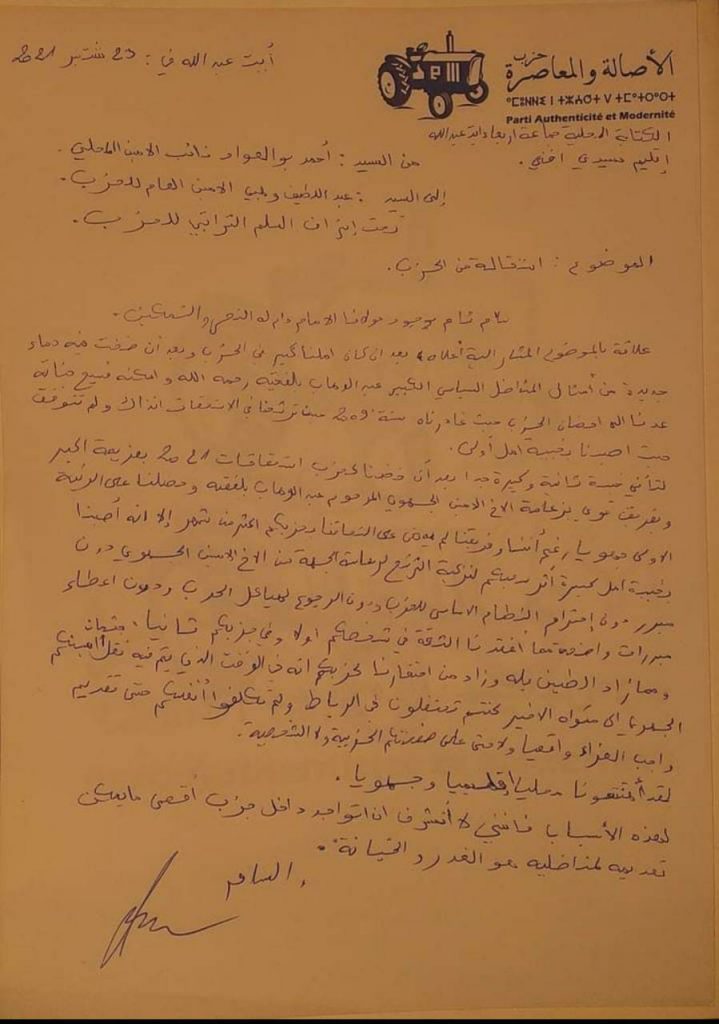 حزب
الأصالة والمعاصرة
ⵎⵓⵏⵏⵉ ⵏ ⵜⵥⴰⵕⵜ ⴷ ⵜⵎⵜⵔⴰⵔⵜ
Parti Authenticité et Modernité
أيت عبد الله في : 23 شتنبر 2021
الكتابة المحلية جماعة اربعاء ايت عبد الله
إقليم سيدي افني .
من السيد : أحمد بوالعواد نائب الامين المحلي .
إلى السيد : عبد اللطيف وهبي الامين العام للحزب .
تحت إشراف السلم التراتبي للحزب .
الموضوع : استقالة من الحزب .
سلام تام بوجود مولانا الامام دام له النصر والتمكين .
علاقة بالموضوع المشار اليه أعلاه ، بعد ان كان املنا كبير في الحزب وبعد أن ضخت فيه دماء
جديدة من أمثال المناضل السياسي الكبير عبد الوهاب بلفقيه رحمه الله واسكنه فسيح جناته
عدنا الى احضان الحزب حيث غادرناه سنة 2009 حيث ترشحنا في الاستحقاقات انذاك ولم نتوفق
حيث اصبنا بخيبة امل أولى .
لتأتي خيبة ثانية وكبيرة جدا بعد أن خضنا كحزب استحقاقات 2021 بعزيمة الكبير
وبفريق قوي بزعامة الاخ الامين الجهوي المرحوم عبد الوهاب بلفقيه وحصلنا على الرتبة
الاولى جهويا رغم أننا وفريقنا لم يمض على التحاقنا بحزبكم اكثر من شهر إلا انه أصبنا
بخيبة امل كبيرة أثر سحبكم لتزكية الترشح لرئاسة الجهة من الاخ الامين الجهوي دون
مبرر دون إحترام النظام الاساسي للحزب ودون الرجوع لهياكل الحزب ودون اعطاء
مبررات واضحة مما أفقدنا الثقة في شخصكم اولا وفي حزبكم ثانيا ،
ومما زاد الطين بله وزاد من افتقارنا لحزبكم انه في الوقت الذي يتم فيه نقل جثمان امينكم
الجهوي الى مثواه الاخير كنتم تحتفلون في الرباط ولم تكلفوا أنفسكم حتى تقديم
واجب العزاء واقعيا ولا حتى على صفحتكم الحزبية ولا الشخصية .
لقد محليا إقليميا وجهويا .
لهذه الأسباب فانني لا أتشرف ان اتواجد داخل حزب أقصى ما يمكن
تقديمه لمناضليه هو الغدر و الخيانة .
و السلام